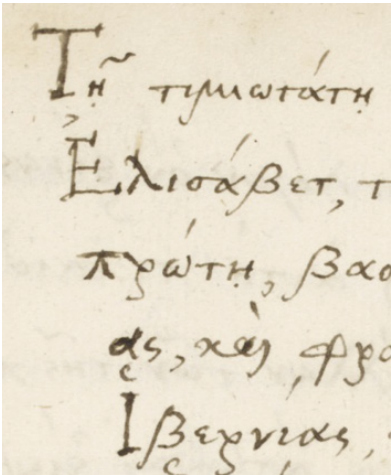 Τῇ τιμιωτάτῃ
Ἐλισάβετ, τ
πρώτῃ, βασ
ας, καὶ φρα
Ἰβερνίας,